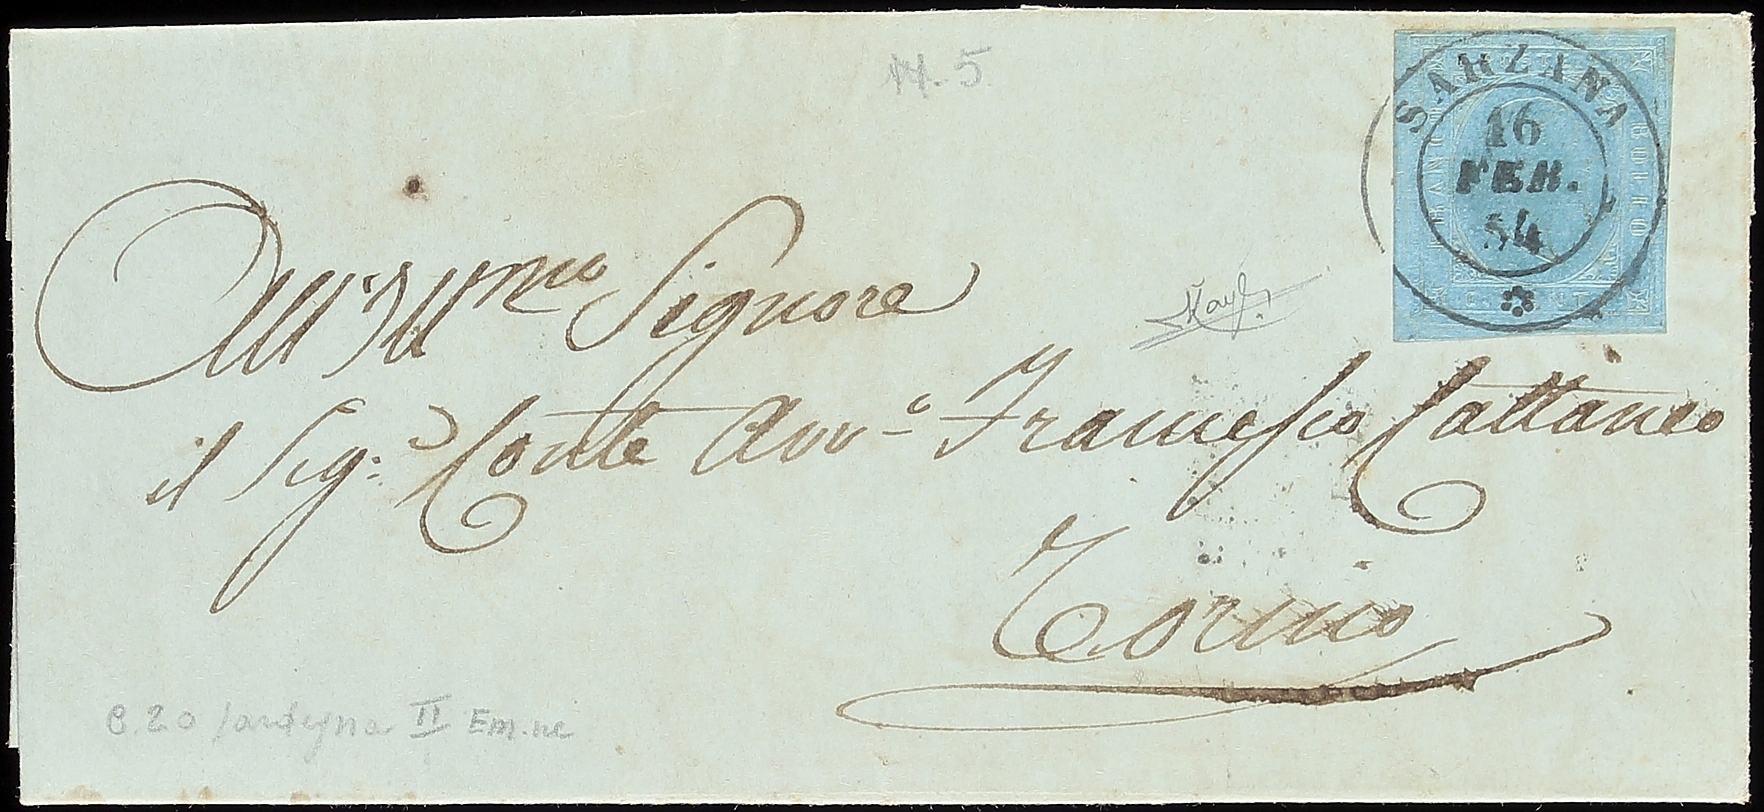 N. 5
SARZANA
16
FEB.
54
FRANCO
BOLLO
C. VENTI
All'Ill.mo Signore
il Sig: Conte Avv.o Francesco Cattaneo
Torino
C. 20 Sardegna II Em.ne